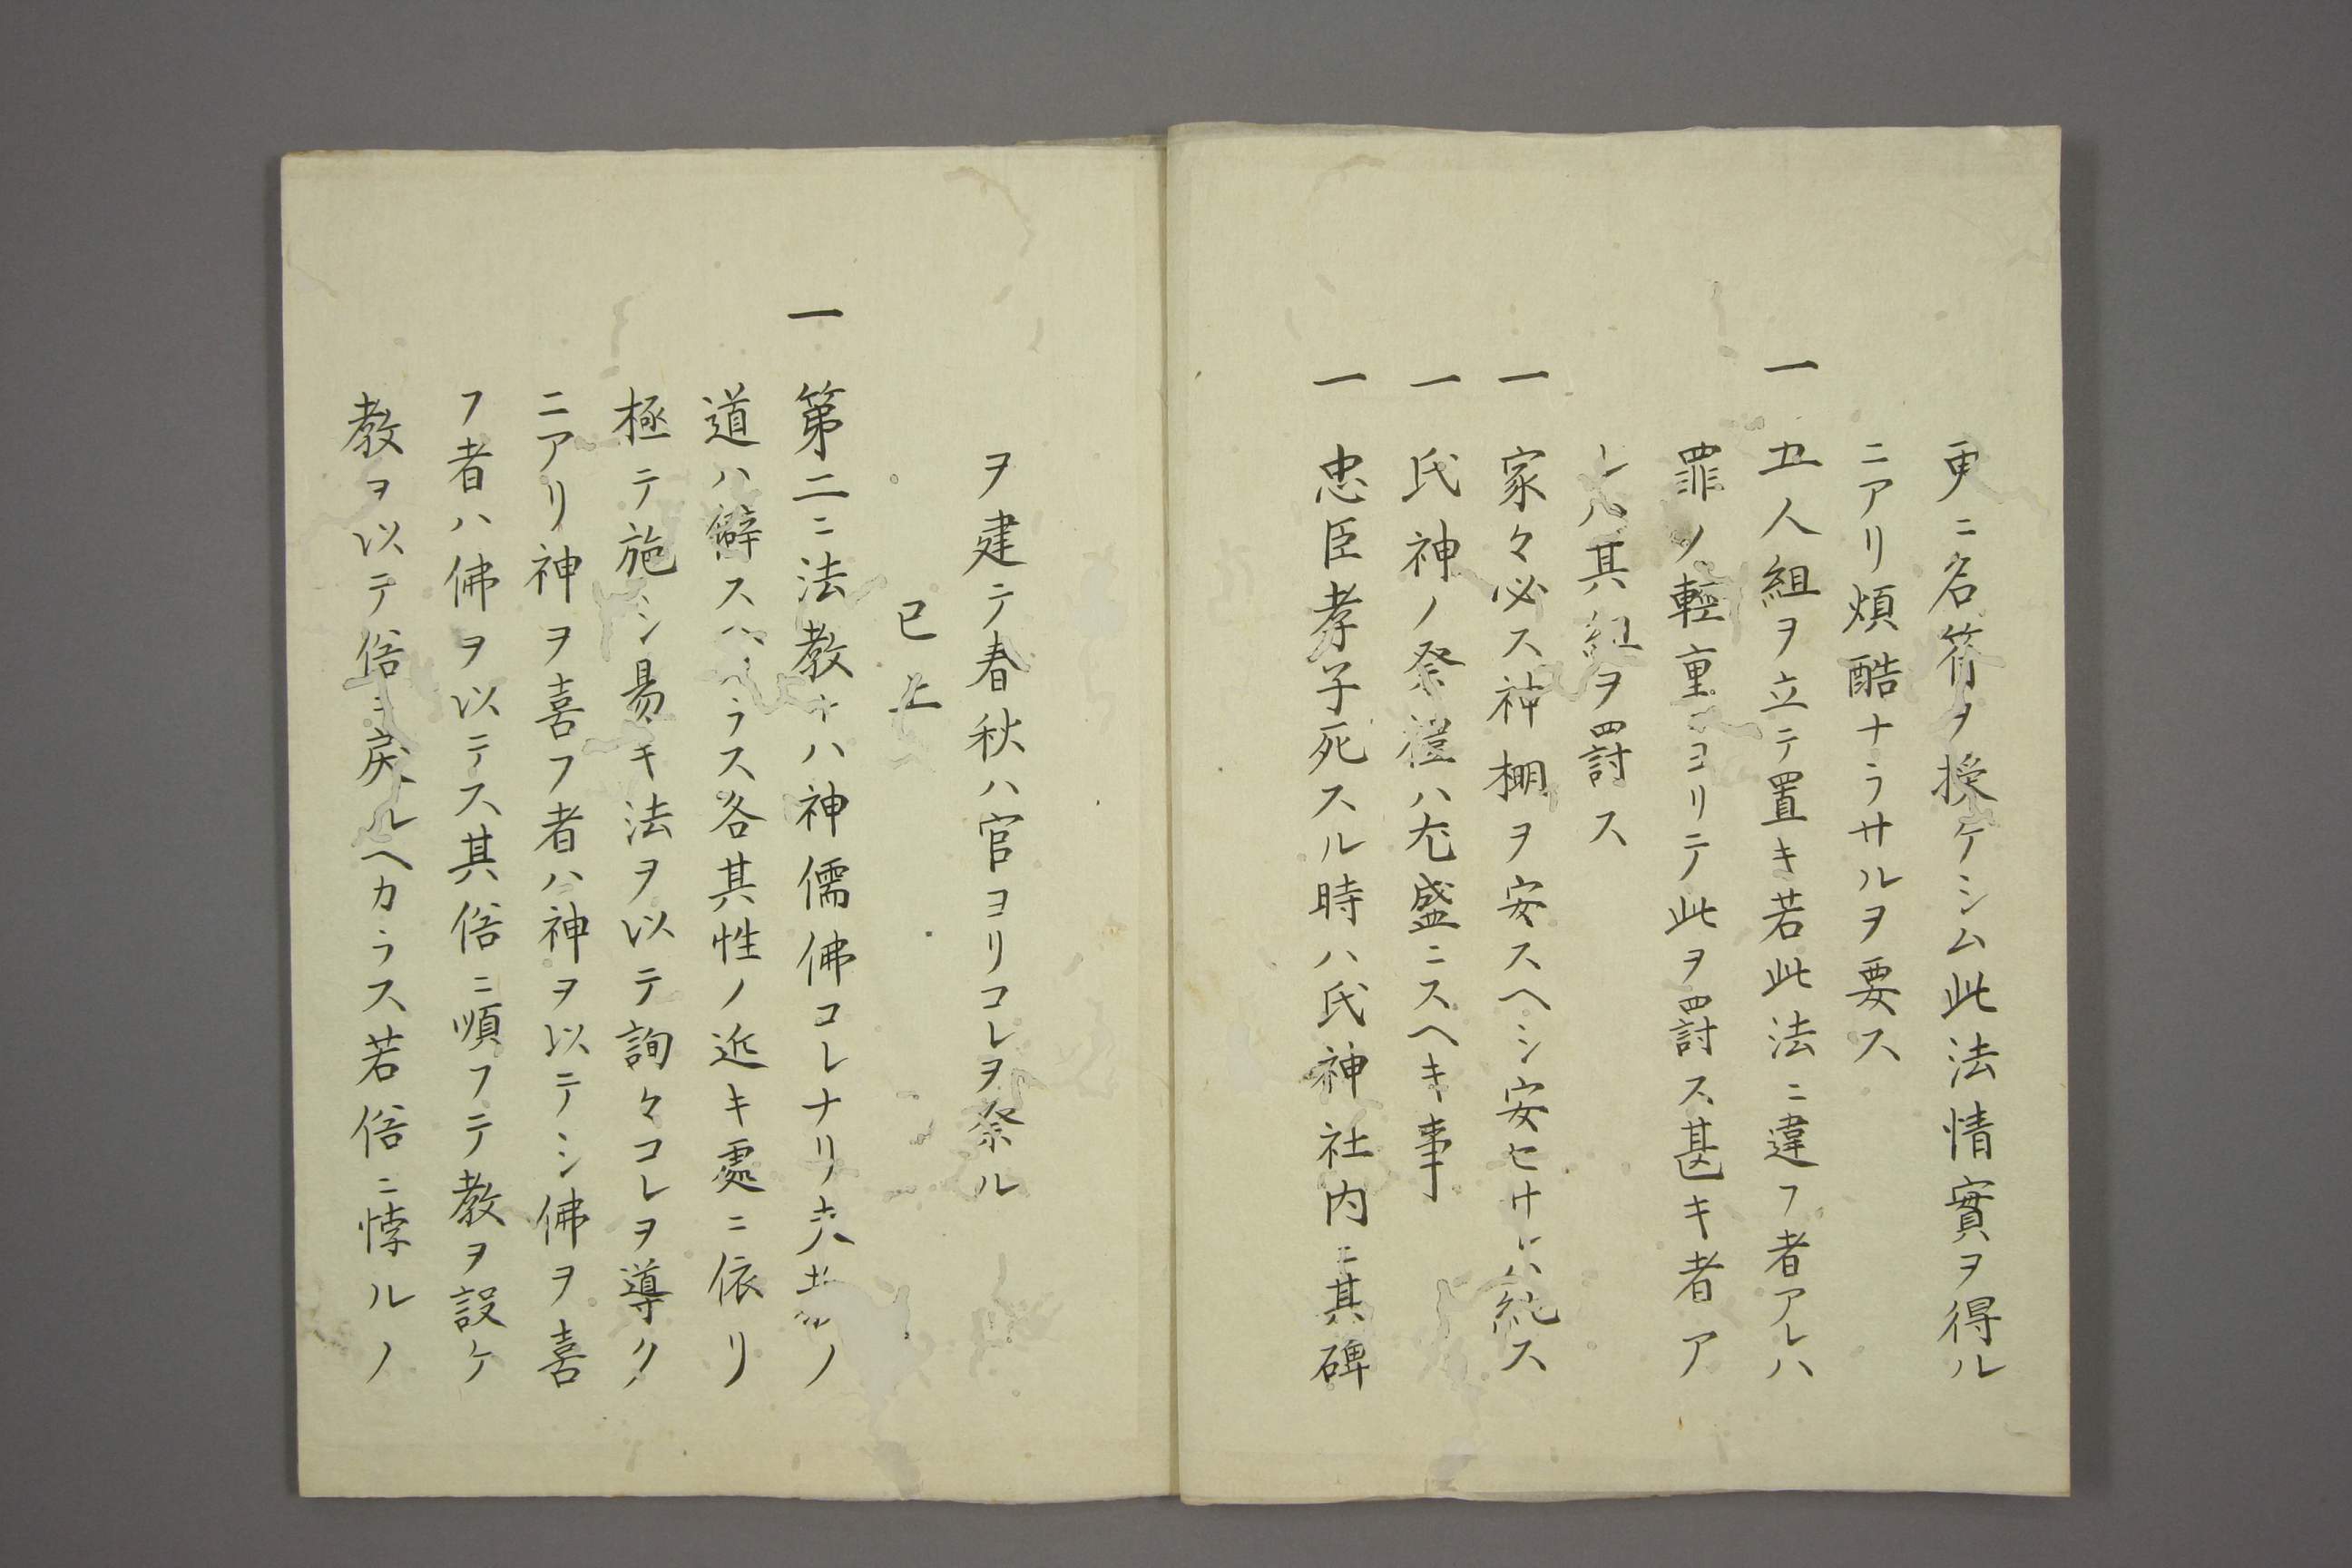 更ニ名符ヲ授ケシム此法情實ヲ得ル
ニアリ煩酷ナラサルヲ要ス
一 五人組ヲ立テ置キ若此法ニ違フ者アレハ
罪ノ輕重ニヨリテ此ヲ罸ス甚キ者ア
レハ其組ヲ罸ス
一 家々必ス神棚ヲ安スヘシ安セサレハ糺ス
一 氏神ノ祭禮ハ尤盛ニスヘキ事
一 忠臣孝子死スル時ハ氏神社内ニ其碑
ヲ建テ春秋ハ官ヨリコレヲ祭ル
已上
一 第二ニ法教トハ神儒佛コレナリ夫 ノ
道ハ僻スヘカラス各其性ノ近キ處ニ依リ
極テ施シ易キ法ヲ以テ詢々コレヲ導ク
ニアリ神ヲ喜フ者ハ神ヲ以テシ佛ヲ喜
フ者ハ佛ヲ以テス其俗ニ順フテ教ヲ設ケ
教ヲ以テ俗ニ戻ルヘカラス若俗ニ悖ルノ